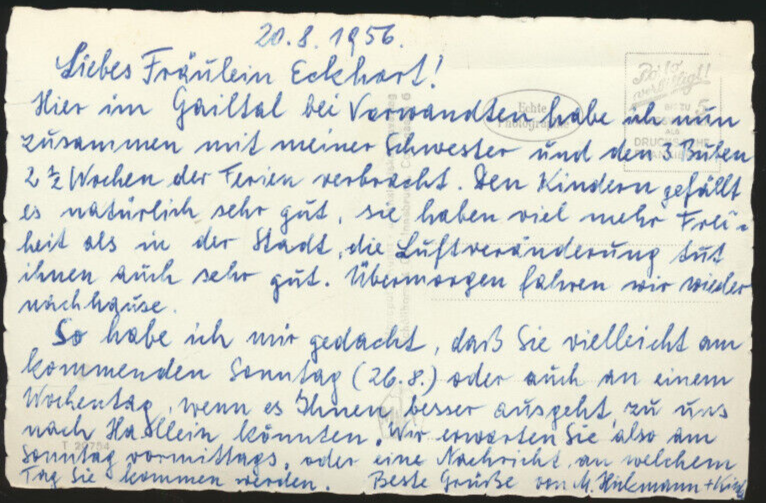 20.8.1956.
Liebes Fräulein Eckhart!
Hier im Gailtal bei Verwandten habe ich nun
zusammen mit meiner Schwester und den 3 Buben
2 ½ Wochen der Ferien verbracht. Den Kindern gefällt
es natürlich sehr gut, sie haben viel mehr Frei-
heit als in der Stadt, die Luftveränderung tut
ihnen auch sehr gut. Übermorgen fahren wir wieder
nachhause.
So habe ich mir gedacht, daß Sie vielleicht am
kommenden Sonntag (26.8.) oder auch an einem
Wochentag, wenn es Ihnen besser ausgeht, zu uns
nach Hallein könnten. Wir erwarten Sie also am
Sonntag vormittags, oder eine Nachricht, an welchem
Tag Sie kommen werden. Beste Grüße von M.
Echte
Photographie
5